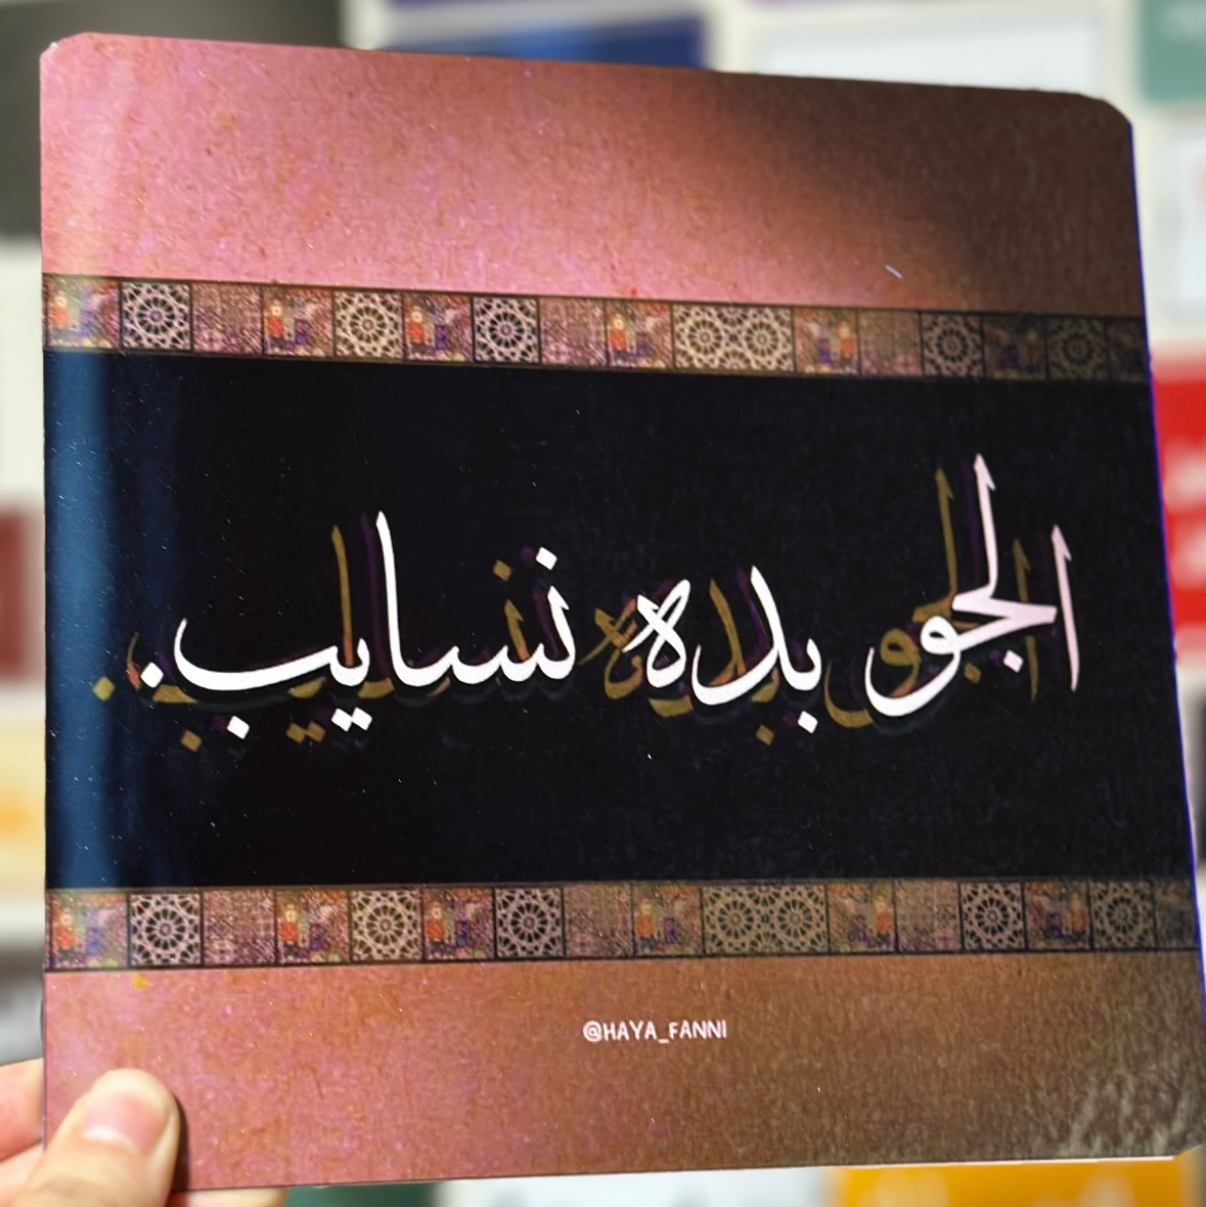 الجو بده نسايب.
@HAYA_FANNI